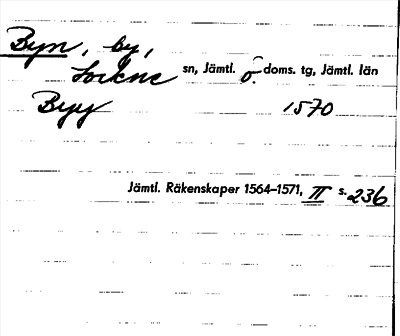 Byn, by,
Lockne sn, Jämtl. ö doms. tg, Jämtl. län
Byy 1570
Jämtl. Räkenskaper 1564–1571, II s. 236